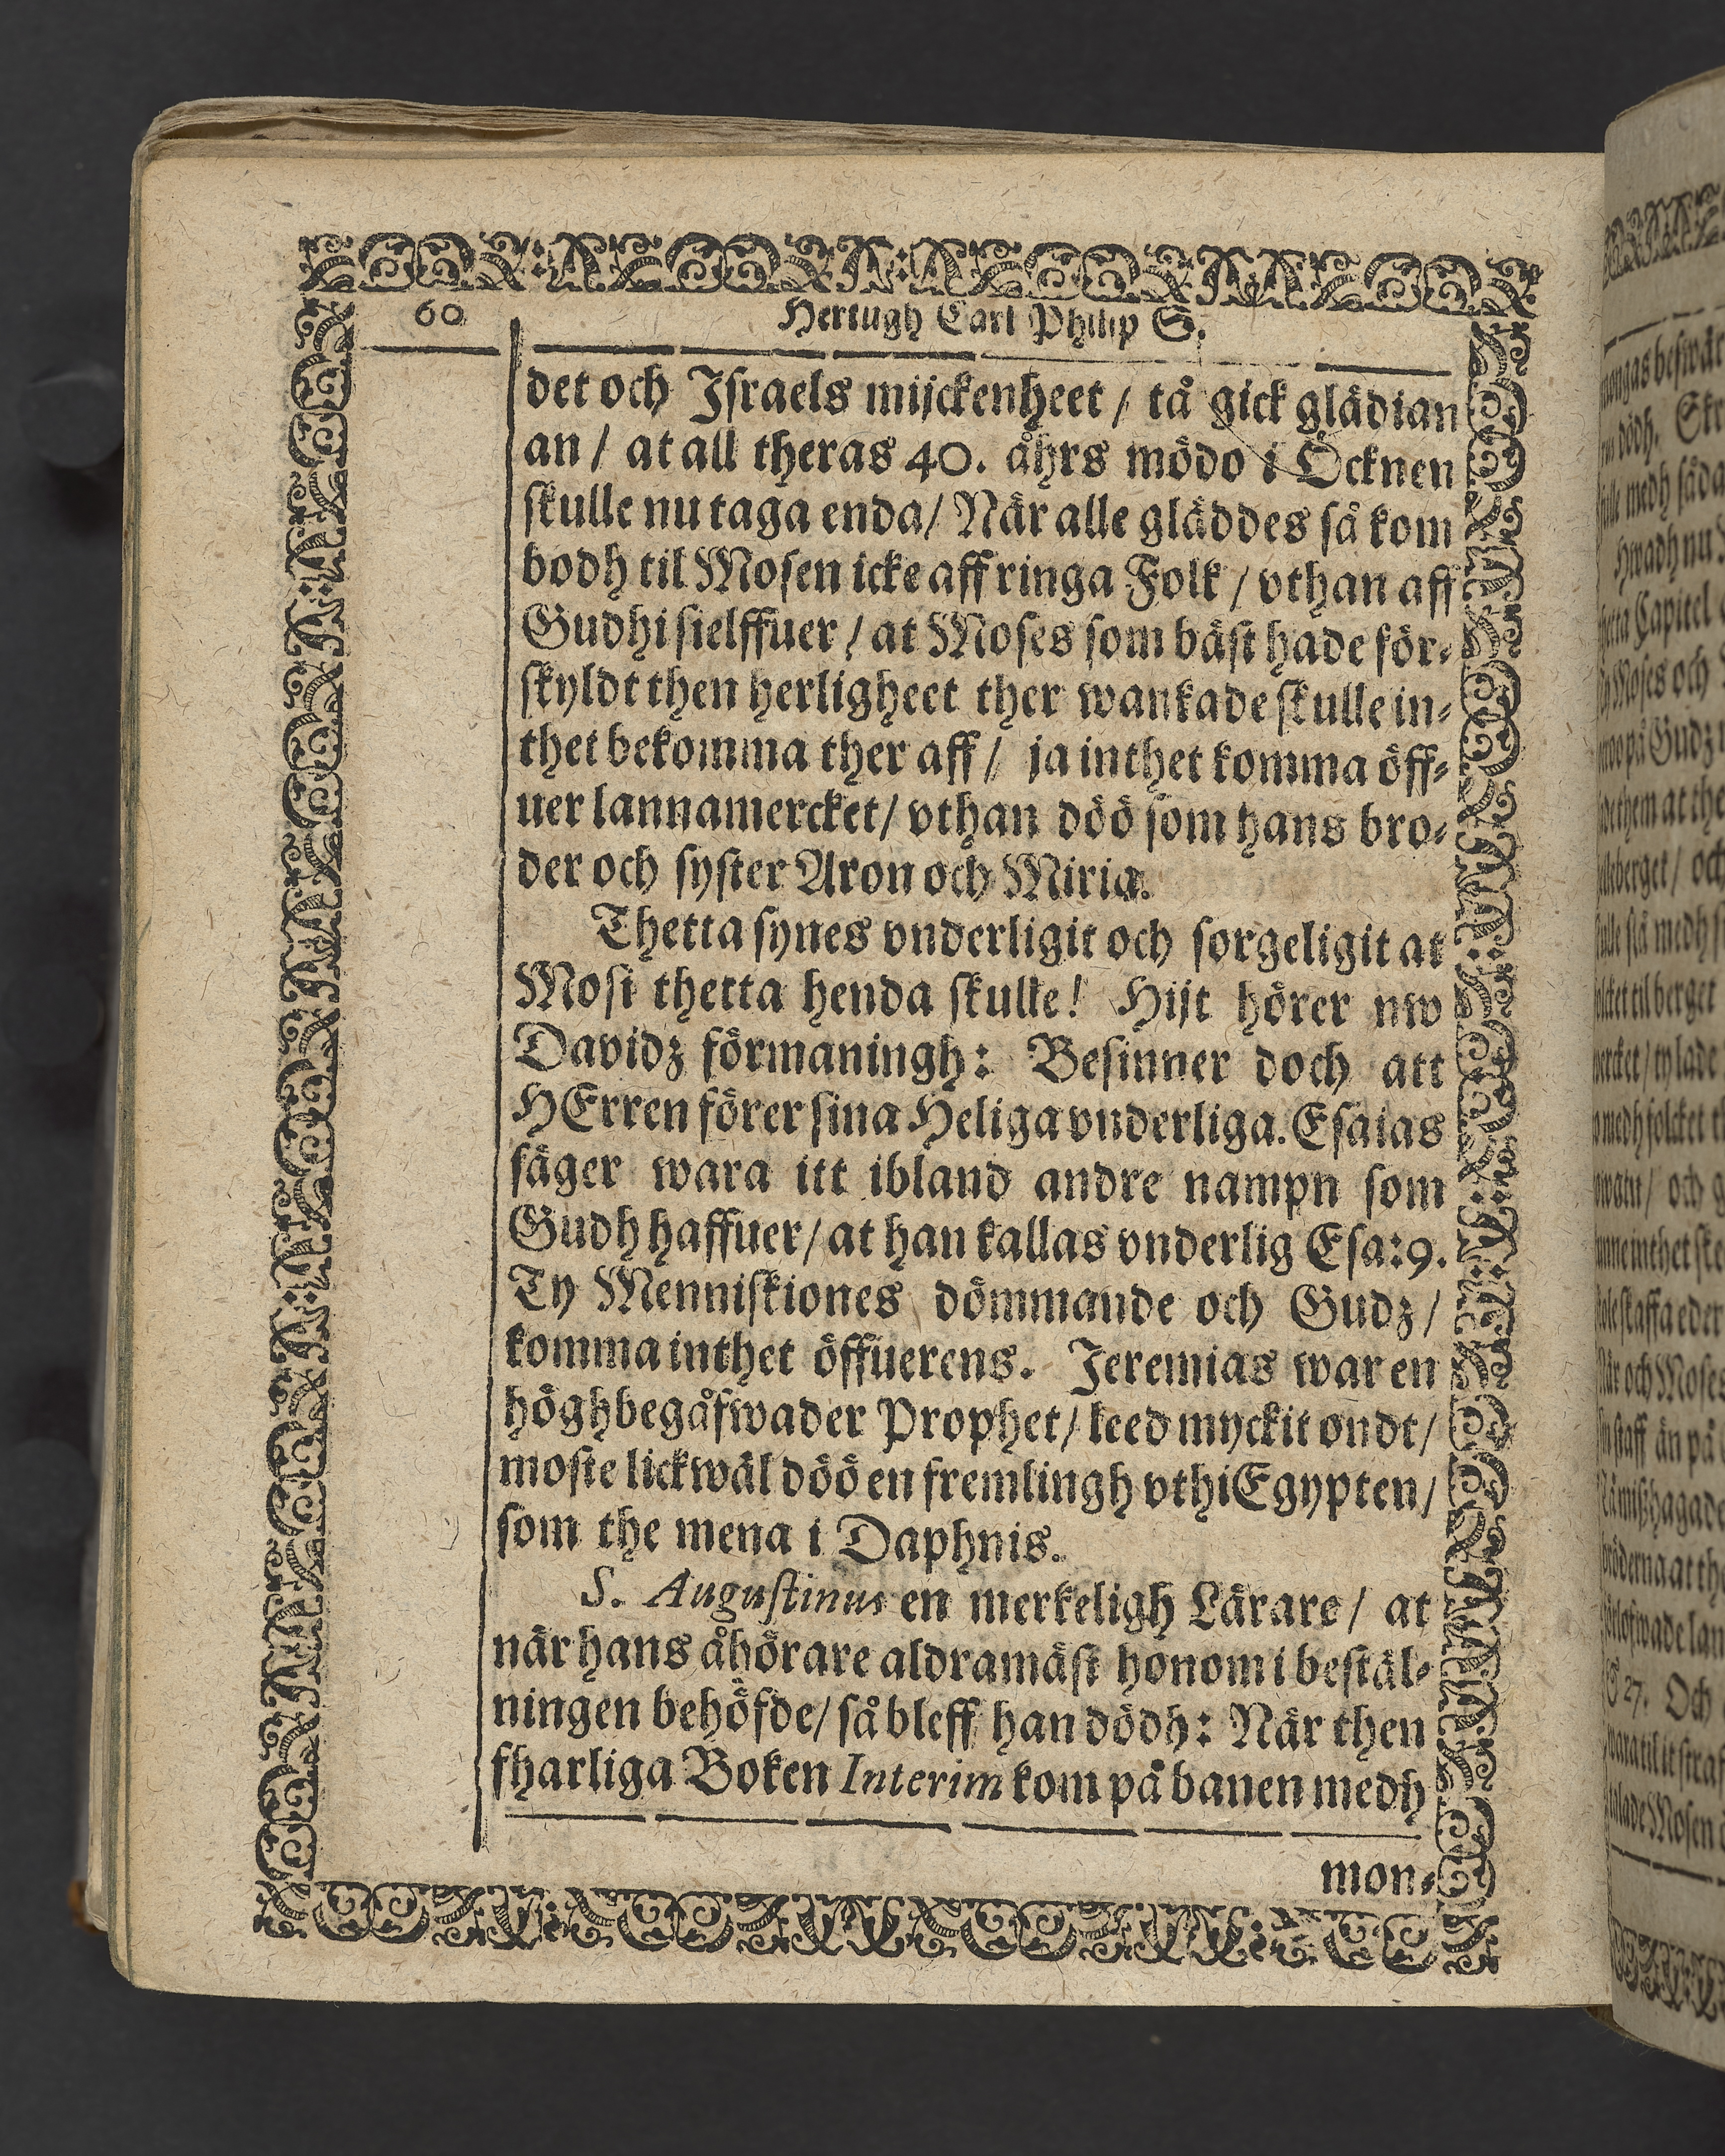 60
Hertugh Carl Philip S.
det och Israels mijckenheet / tå gick glädian
an / at all theras 40. åhrs mödo i Öcknen
skulle nu taga enda / När alle gläddes så kom
bodh til Mosen icke aff ringa Folk / vthan aff
Gudhi sielffuer / at Moses som bäst hade för-
skyldt then herligheet ther wankade skulle in-
thet bekomma ther aff / ja inthet komma öff-
uer lannamercket / vthan döö som hans bro-
der och syster Aron och Miria.
Thetta synes vnderligit och sorgeligit at
Mosi thetta henda skulle! Hijt hörer nw
Davidz förmaningh: Besinner doch att
HErren förer sina Heliga vnderliga. Esaias
säger wara itt ibland andre nampn som
Gudh haffuer / at han kallas vnderlig Esa: 9.
Ty Menniskiones dömmande och Gudz /
komma inthet öffuerens. Jeremias war en
höghbegåfwader Prophet / leed myckit ondt /
moste lickwäl döö en fremlingh vthi Egypten /
som the mena i Daphnis.
S. Augustinus en merkeligh Lärare / at
när hans åhörare aldramäst honom i bestäl-
ningen behöfde / så bleff han dödh: När then
fharliga Boken Interim kom på banen medh
mon-